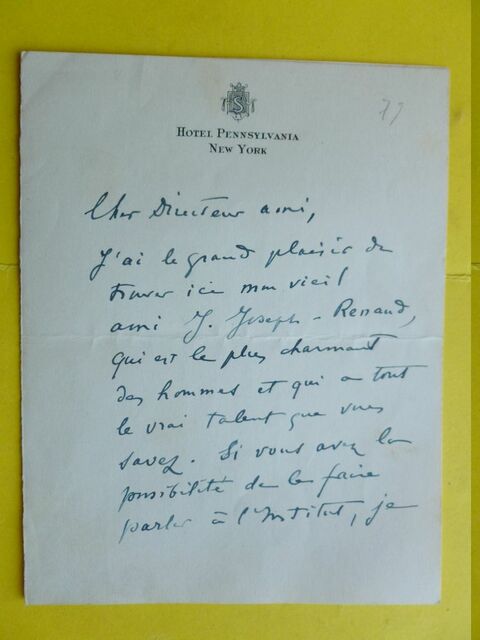 S
77
HOTEL PENNSYLVANIA
NEW YORK
Cher Directeur ami,
J'ai le grand plaisir de
trouver ici mon vieil
ami J. Joseph-Renaud,
qui est le plus charmant
des hommes et qui a tout
le vrai talent que vous
savez. Si vous avez la
possibilité de le faire
parler à l'Institut, je